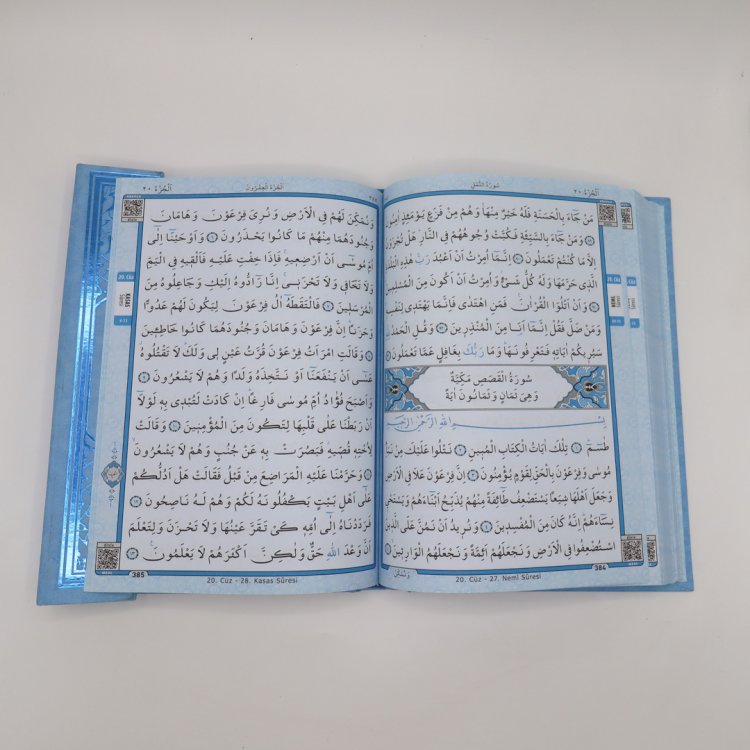 اَلْجُزْءُ ٢٠
سُورَةُ النَّمْلِ
مَنْ جَٓاءَ بِالْحَسَنَةِ فَلَهُ خَيْرٌ مِنْهَاۚ وَهُمْ مِنْ فَزَعٍ يَوْمَئِذٍ
وَمَنْ جَٓاءَ بِالسَّيِّئَةِ فَكُبَّتْ وُجُوهُهُمْ فِي النَّارِۜ هَلْ تُجْزَوْنَ
اِلَّا مَا كُنْتُمْ تَعْمَلُونَ ﴿٩٠﴾ اِنَّمَٓا اُمِرْتُ اَنْ اَعْبُدَ رَبَّ هٰذِهِ
الَّذ۪ي حَرَّمَهَا وَلَهُ كُلُّ شَيْءٍۘ وَاُمِرْتُ اَنْ اَكُونَ مِنَ
﴿٩١﴾ وَاَنْ اَتْلُوَا الْقُرْاٰنَۚ فَمَنِ اهْتَدٰى فَاِنَّمَا يَهْتَد۪ي
وَمَنْ ضَلَّ فَقُلْ اِنَّمَٓا اَنَا۬ مِنَ الْمُنْذِر۪ينَ ﴿٩٢﴾ وَقُلِ الْحَمْدُ
سَيُر۪يكُمْ اٰيَاتِه۪ فَتَعْرِفُونَهَاۜ وَمَا رَبُّكَ بِغَافِلٍ عَمَّا تَعْمَلُونَ ﴿٩٣﴾
سُورَةُ الْقَصَصِ مَكِّيَّةٌ
وَهِيَ ثَمَانٍ وَثَمَانُونَ اٰيَةً
بِسْمِ اللّٰهِ الرَّحْمٰنِ الرَّح۪يمِ
طٰسٓمٓ ﴿١﴾ تِلْكَ اٰيَاتُ الْكِتَابِ الْمُب۪ينِ ﴿٢﴾ نَتْلُوا عَلَيْكَ مِنْ
مُوسٰى وَفِرْعَوْنَ بِالْحَقِّ لِقَوْمٍ يُؤْمِنُونَ ﴿٣﴾ اِنَّ فِرْعَوْنَ عَلَا فِي الْاَرْضِ
وَجَعَلَ اَهْلَهَا شِيَعًا يَسْتَضْعِفُ طَٓائِفَةً مِنْهُمْ يُذَبِّحُ اَبْنَٓاءَهُمْ
نِسَٓاءَهُمْۜ اِنَّهُ كَانَ مِنَ الْمُفْسِد۪ينَ ﴿٤﴾ وَنُر۪يدُ اَنْ نَمُنَّ عَلَى الَّذ۪ينَ
اسْتُضْعِفُوا فِي الْاَرْضِ وَنَجْعَلَهُمْ اَئِمَّةً وَنَجْعَلَهُمُ الْوَارِث۪ينَۙ ﴿٥﴾
وَنُمَكِّنَ
384
20. Cüz - 27. Neml Sûresi
اَلْجُزْءُ الْعِشْرُونَ
اَلْجُزْءُ ٢٠
وَنُمَكِّنَ لَهُمْ فِي الْاَرْضِ وَنُرِيَ فِرْعَوْنَ وَهَامَانَ
وَجُنُودَهُمَا مِنْهُمْ مَا كَانُوا يَحْذَرُونَ ﴿٦﴾ وَاَوْحَيْنَٓا اِلٰٓى
اُمِّ مُوسٰٓى اَنْ اَرْضِع۪يهِۚ فَاِذَا خِفْتِ عَلَيْهِ فَاَلْق۪يهِ فِي الْيَمِّ
وَلَا تَخَاف۪ي وَلَا تَحْزَن۪يۚ اِنَّا رَٓادُّوهُ اِلَيْكِ وَجَاعِلُوهُ مِنَ
الْمُرْسَل۪ينَ ﴿٧﴾ فَالْتَقَطَهُٓ اٰلُ فِرْعَوْنَ لِيَكُونَ لَهُمْ عَدُوًّا
وَحَزَنًاۜ اِنَّ فِرْعَوْنَ وَهَامَانَ وَجُنُودَهُمَا كَانُوا خَاطِـ۪ٔينَ
﴿٨﴾ وَقَالَتِ امْرَاَتُ فِرْعَوْنَ قُرَّتُ عَيْنٍ ل۪ي وَلَكَۜ لَا تَقْتُلُوهُۗ
عَسٰٓى اَنْ يَنْفَعَنَٓا اَوْ نَتَّخِذَهُ وَلَدًا وَهُمْ لَا يَشْعُرُونَ ﴿٩﴾
وَاَصْبَحَ فُؤٰادُ اُمِّ مُوسٰى فَارِغًاۜ اِنْ كَادَتْ لَتُبْد۪ي بِه۪ لَوْلَٓا
اَنْ رَبَطْنَا عَلٰى قَلْبِهَا لِتَكُونَ مِنَ الْمُؤْمِن۪ينَ ﴿١٠﴾ وَقَالَتْ
لِاُخْتِه۪ قُصّ۪يهِۘ فَبَصُرَتْ بِه۪ عَنْ جُنُبٍ وَهُمْ لَا يَشْعُرُونَۙ
﴿١١﴾ وَحَرَّمْنَا عَلَيْهِ الْمَرَاضِعَ مِنْ قَبْلُ فَقَالَتْ هَلْ اَدُلُّكُمْ
عَلٰٓى اَهْلِ بَيْتٍ يَكْفُلُونَهُ لَكُمْ وَهُمْ لَهُ نَاصِحُونَ ﴿١٢﴾
فَرَدَدْنَاهُ اِلٰٓى اُمِّه۪ كَيْ تَقَرَّ عَيْنُهَا وَلَا تَحْزَنَ وَلِتَعْلَمَ
اَنَّ وَعْدَ اللّٰهِ حَقٌّ وَلٰكِنَّ اَكْثَرَهُمْ لَا يَعْلَمُونَ۟ ﴿١٣﴾
385
20. Cüz - 28. Kasas Sûresi
20. Cüz
KASAS
Sûresi